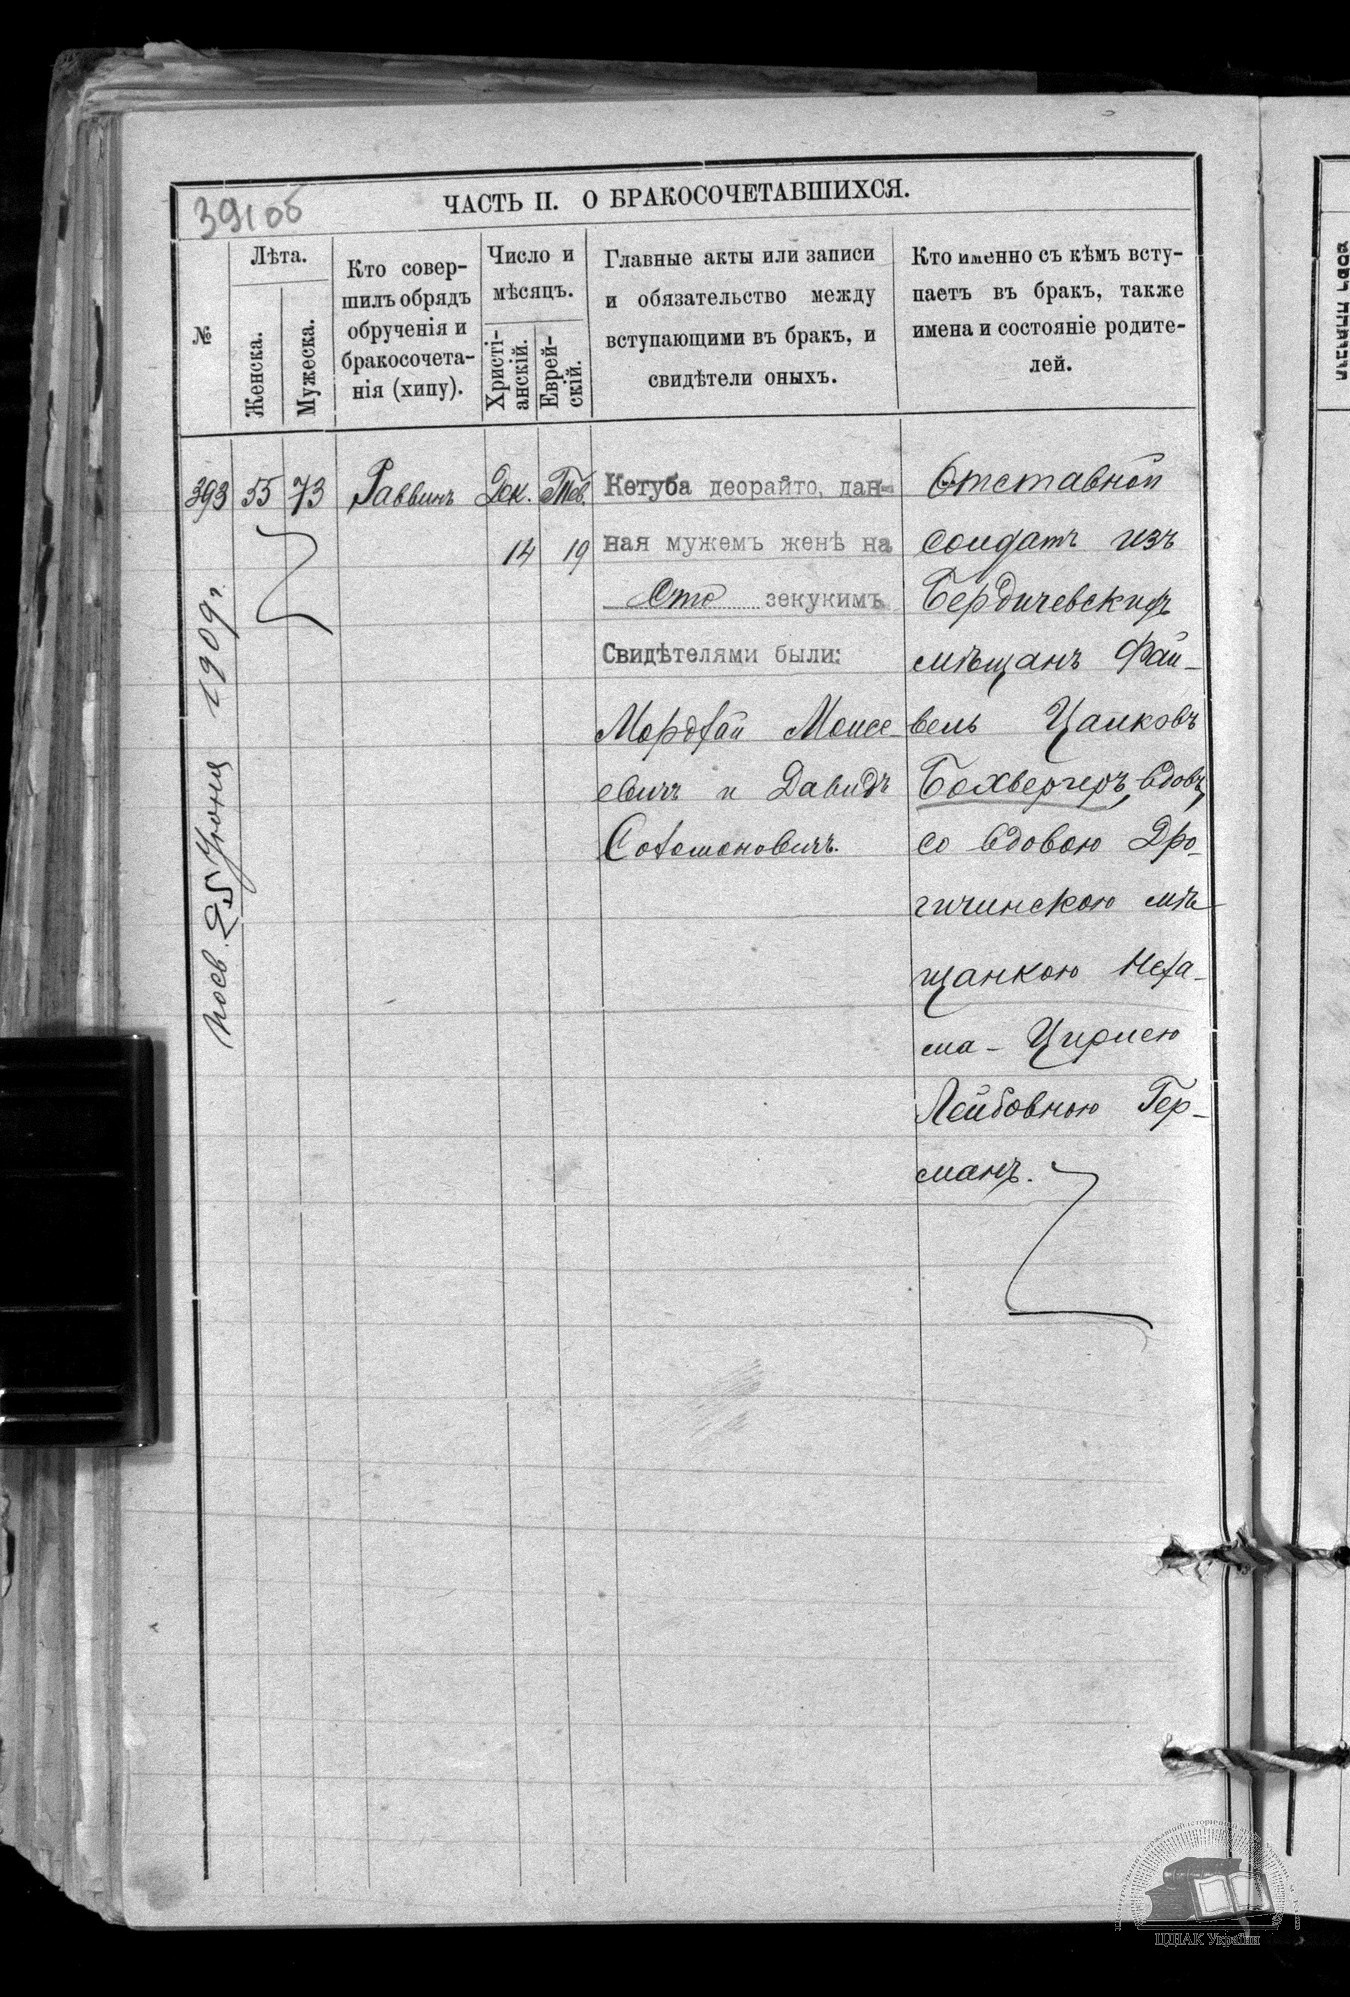 391об
ЧАСТЬ II. О БРАКОСОЧЕТАВШИХСЯ.
№
Лѣта.
Женска.
Мужеска.
Кто совер-
шилъ обрядъ
обрученія и
бракосочета-
нія (хипу).
Число и
мѣсяцъ.
Христі-
анскій.
Еврей-
скій.
Главные акты или записи
и обязательство между
вступающими въ бракъ, и
свидѣтели оныхъ.
Кто именно съ кѣмъ всту-
паетъ въ бракъ, также
имена и состояніе родите-
лей.
393
55
73
Раввинъ
Дек.
14
Тев.
19
Кетуба деорайто, дан-
ная мужемъ женѣ на
Сто зекукимъ
Свидѣтелями были:
Мордхай Моисе-
евичъ и Давидъ
Соломоновичъ.
Отставной
солдатъ изъ
Бердичевскихъ
мѣщанъ Фай-
вель Цалковъ
Бохвергеръ, вдовъ,
со вдовою Дро-
гичинскою мѣ-
щанкою Неха-
ма-Цирлею
Лейбовною Гер-
манъ.
25 Іюня 1909 г.
ЦДІАК України